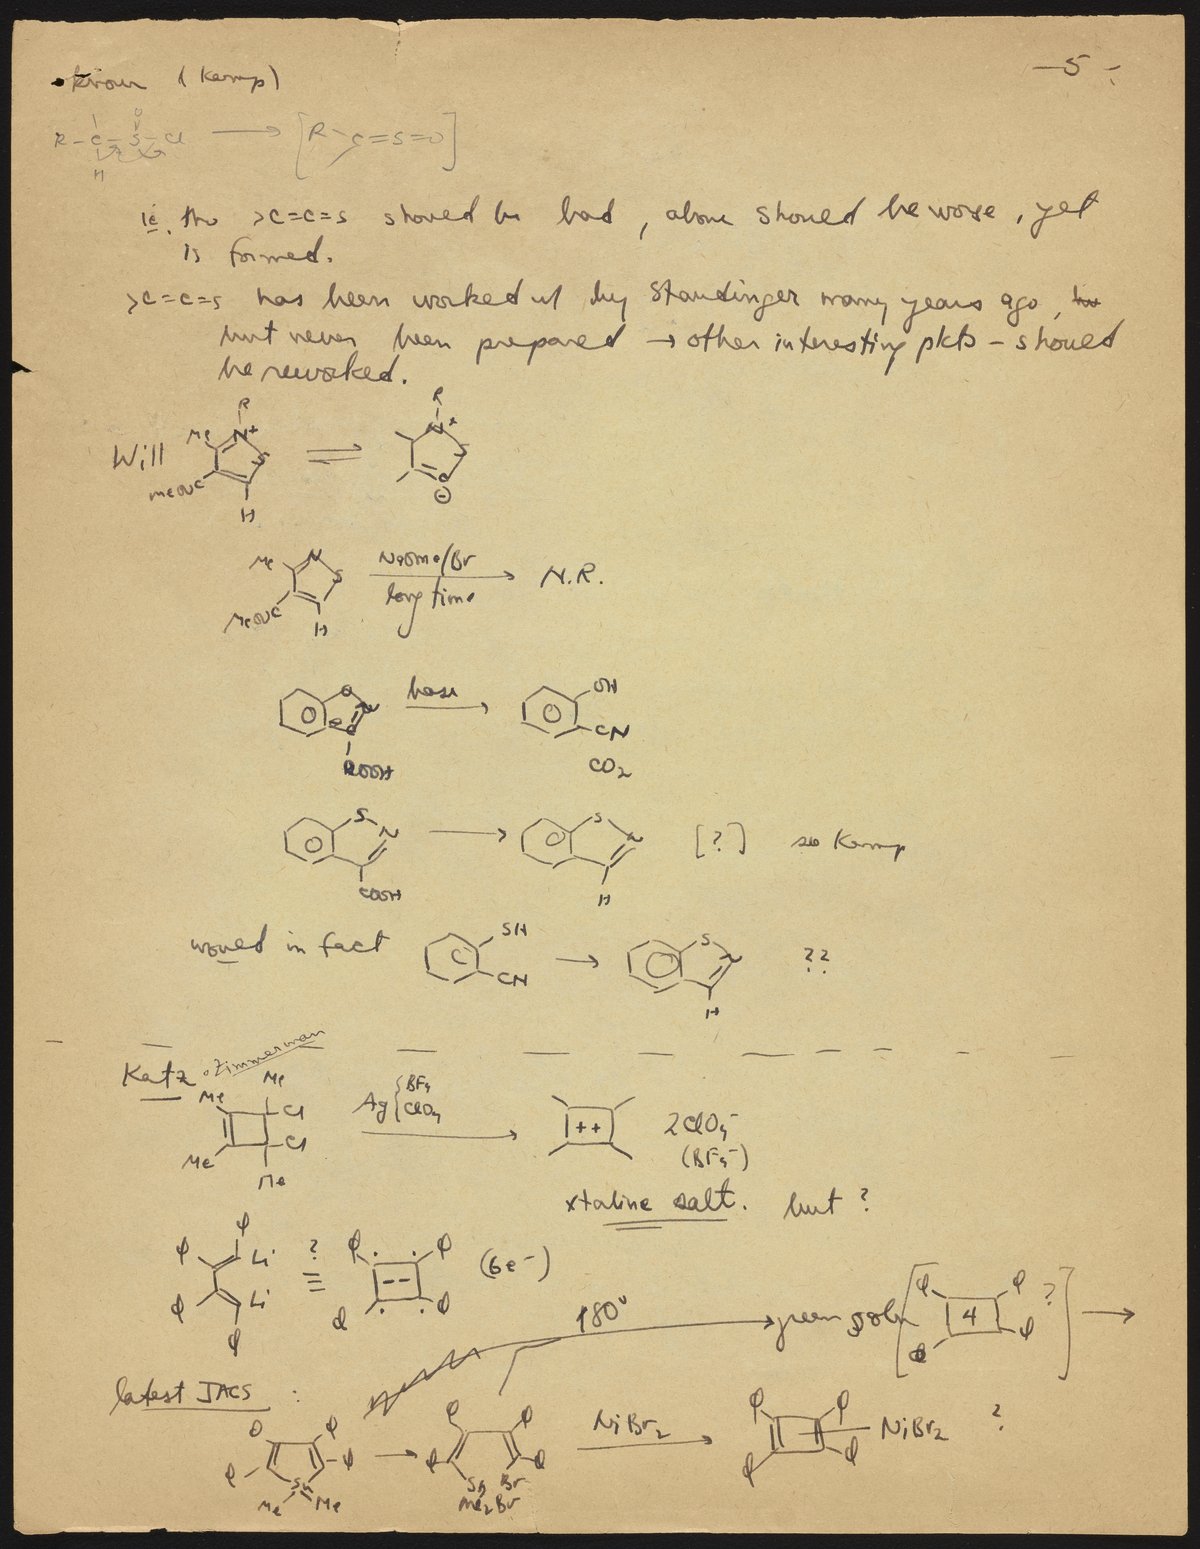 -5-
• known (Kemp)
R-C-S-Cl → [R>C=S=O]
O
H
ie. tho >C=C=S should be bad, above should be worse, yet
is formed.
>C=C=S has been worked w/ by Staudinger many years ago,
but never been prepared → other interesting pdts – should
be reworked.
R R
Will Me N+ S ⇌ N+ S
MeO2C C ⊖
H
Me N S NaOMe/Br → N.R.
MeO2C long time
H
O N base → OH
C CN
COOH CO2
S N → S N [?] see Kemp
COOH H
would in fact SH → S N ??
CN H
Katz • Zimmerman
Me Me Cl Ag { BF4 ClO4 → ++ 2ClO4-
Me Cl (BF4-)
Me
xtaline salt. but ?
φ φ Li ? φ φ (6e-)
φ Li ≡ -- φ φ
φ
180° → green soln [φ φ 4 φ φ ?] →
latest JACS :
φ φ φ φ → φ φ φ φ NiBr2 → φ φ φ φ NiBr2 ?
Sn Sn Br
Me Me Me2Br